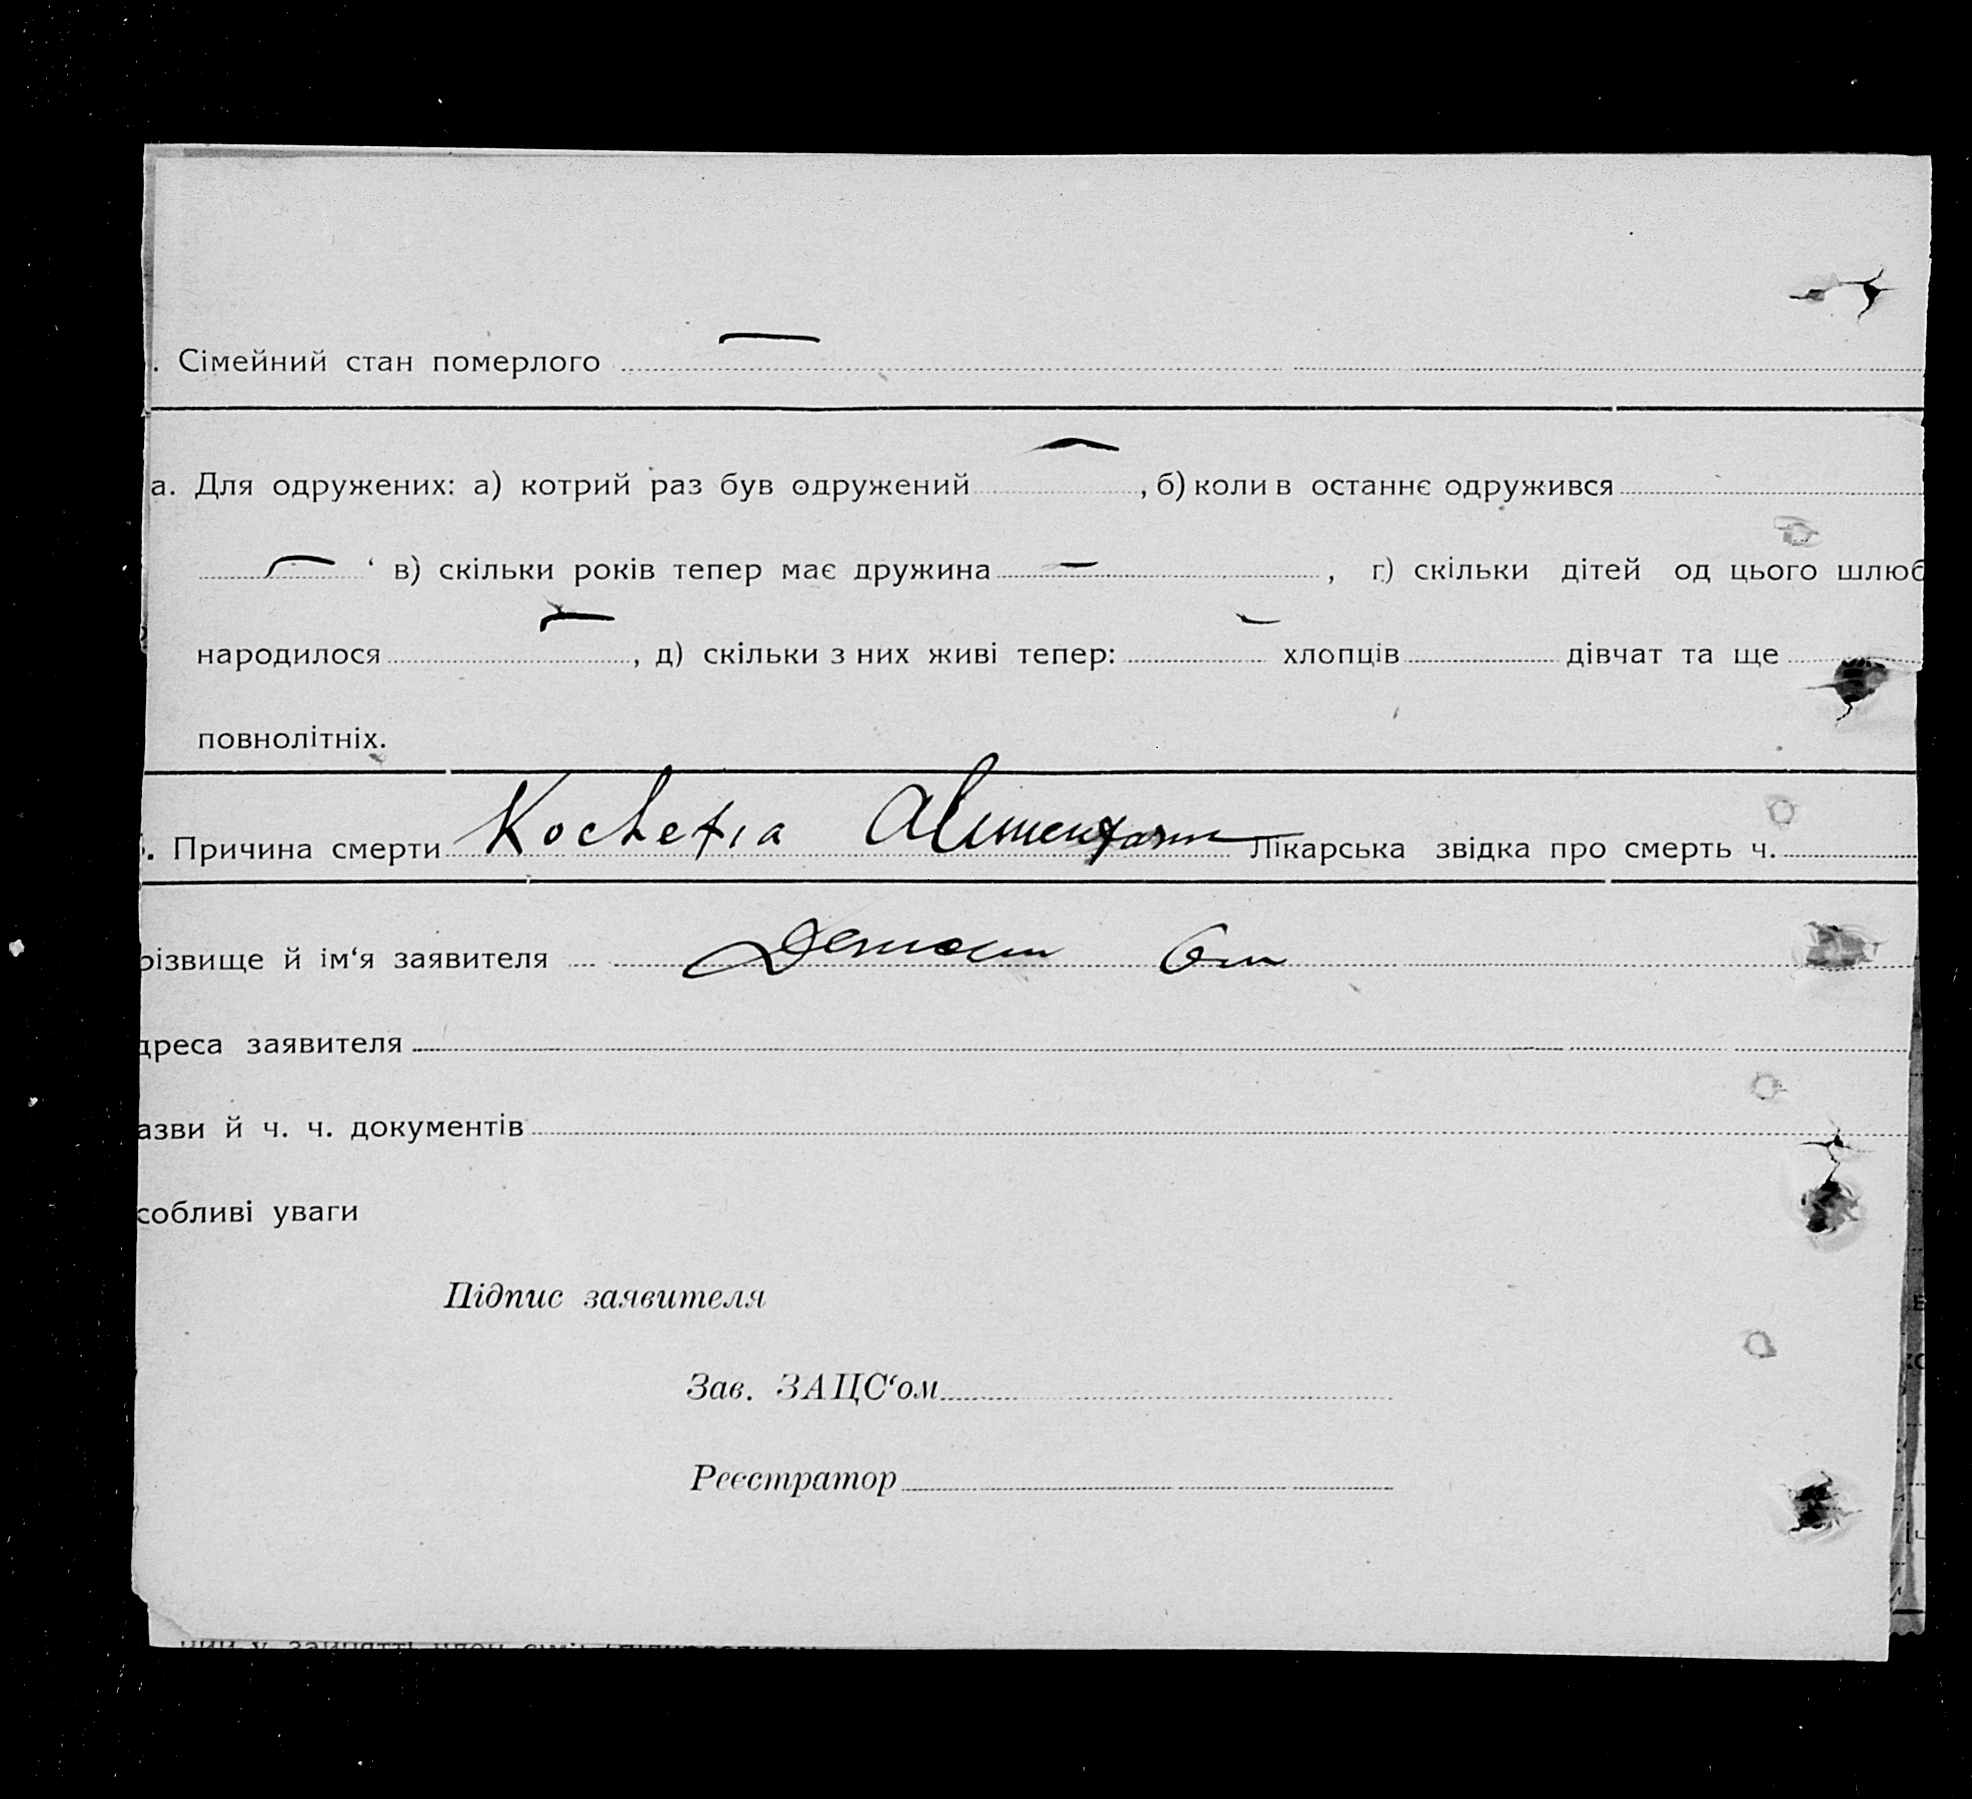 . Сімейний стан померлого
а. Для одружених: а) котрий раз був одружений , б) коли в останнє одружився
‘ в) скільки років тепер має дружина , г) скільки дітей од цього шлюб
народилося , д) скільки з них живі тепер: хлопців дівчат та ще
повнолітніх.
. Причина смерти Лікарська звідка про смерть ч.
різвище й ім‘я заявителя
дреса заявителя
азви й ч. ч. документів
собливі уваги
Підпис заявителя
Зав. ЗАЦС‘ом
Реєстратор